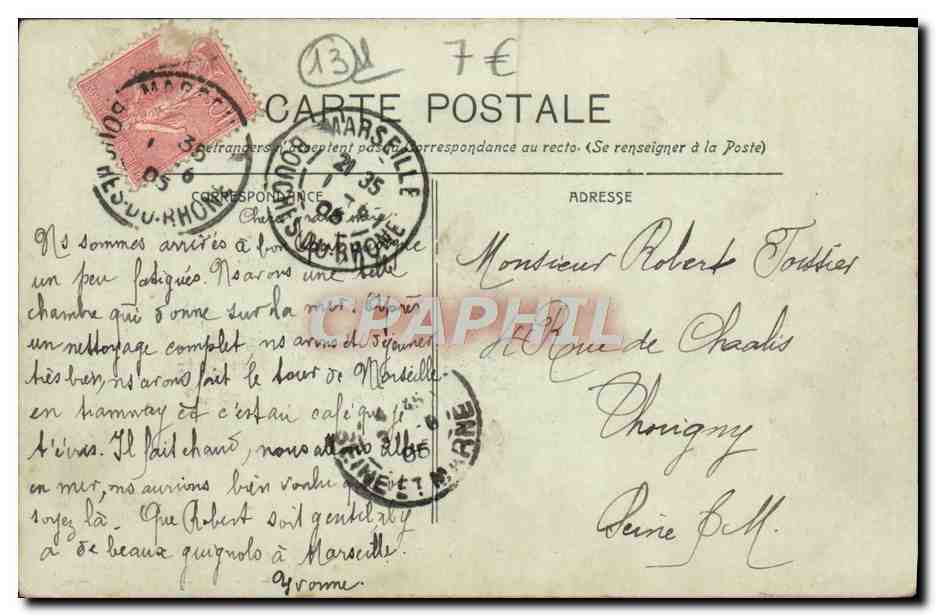 13
7 €
CARTE POSTALE
étrangers n'acceptent pas la correspondance au recto. (Se renseigner à la Poste)
CORRESPONDANCE
ADRESSE
MARSEILLE
21 35
1 - 6
05
BOUCHES-DU-RHONE
35
1 6
05
HES-DU-RHONE
Ns sommes arrivés à bon
un peu fatigués. Ns avons une belle
chambre qui donne sur la mer. Après
un nettoyage complet, ns avons déjeuner
très bien, ns avons fait le tour de Marseille
en tramway et c'est au café que je
t'écris. Il fait chaud, nous allons aller
en mer, ns aurions bien voulu
soyez là. Que Robert soit gentil, il y
a de beaux guignols à Marseille.
Yvonne.
Monsieur Robert
4 Rue de Chaalis
Thorigny
Seine & M.
6
05
SEINE ET MARNE
CPAPHIL